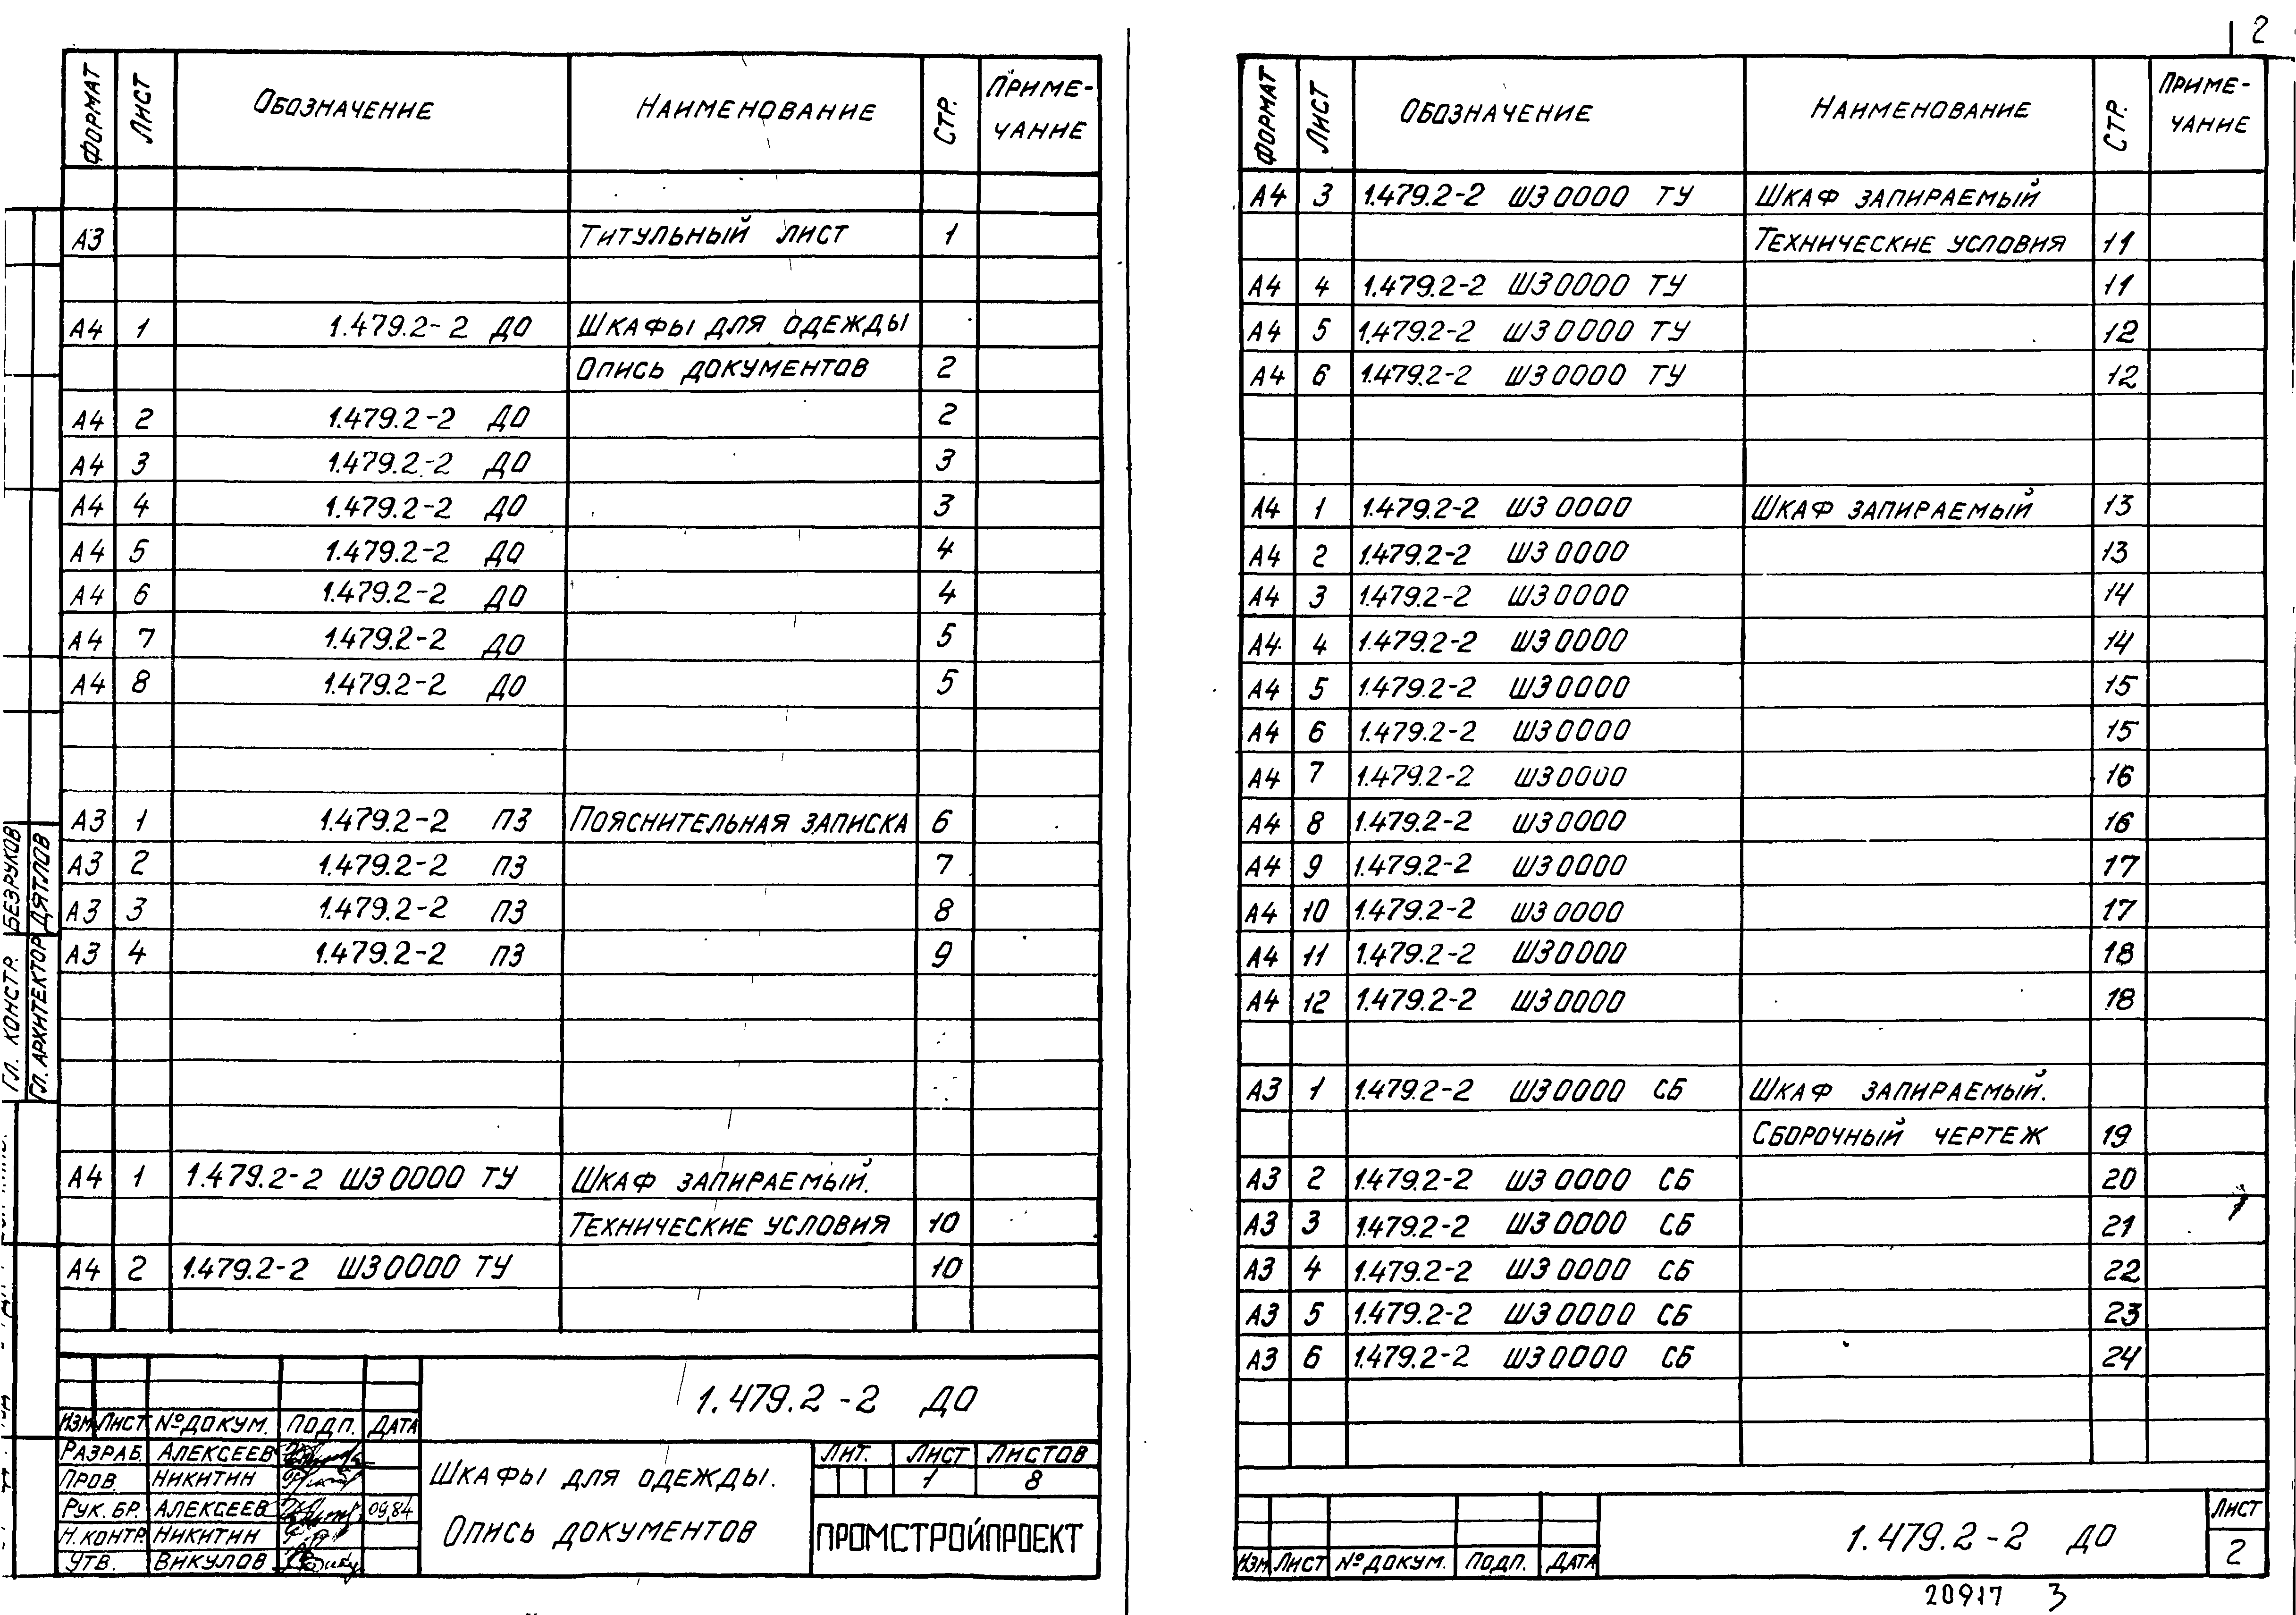 2
ФОРМАТ ЛИСТ ОБОЗНАЧЕНИЕ НАИМЕНОВАНИЕ СТР. ПРИМЕ-ЧАНИЕ
А3 ТИТУЛЬНЫЙ ЛИСТ 1
А4 1 1.479.2-2 ДО ШКАФЫ ДЛЯ ОДЕЖДЫ
ОПИСЬ ДОКУМЕНТОВ 2
А4 2 1.479.2-2 ДО 2
А4 3 1.479.2-2 ДО 3
А4 4 1.479.2-2 ДО 3
А4 5 1.479.2-2 ДО 4
А4 6 1.479.2-2 ДО 4
А4 7 1.479.2-2 ДО 5
А4 8 1.479.2-2 ДО 5
А3 1 1.479.2-2 ПЗ ПОЯСНИТЕЛЬНАЯ ЗАПИСКА 6
А3 2 1.479.2-2 ПЗ 7
А3 3 1.479.2-2 ПЗ 8
А3 4 1.479.2-2 ПЗ 9
А4 1 1.479.2-2 ШЗ 0000 ТУ ШКАФ ЗАПИРАЕМЫЙ.
ТЕХНИЧЕСКИЕ УСЛОВИЯ 10
А4 2 1.479.2-2 ШЗ 0000 ТУ 10
ГЛ. КОНСТР. БЕЗРУКОВ
ГЛ. АРХИТЕКТОР ДЯТЛОВ
1.479.2-2 ДО
ИЗМ ЛИСТ № ДОКУМ. ПОДП. ДАТА
РАЗРАБ. АЛЕКСЕЕВ
ПРОВ. НИКИТИН
РУК. БР. АЛЕКСЕЕВ 09.84
Н. КОНТР. НИКИТИН
УТВ. ВИКУЛОВ
ШКАФЫ ДЛЯ ОДЕЖДЫ.
ОПИСЬ ДОКУМЕНТОВ
ЛИТ. ЛИСТ ЛИСТОВ
1 8
ПРОМСТРОЙПРОЕКТ
ФОРМАТ ЛИСТ ОБОЗНАЧЕНИЕ НАИМЕНОВАНИЕ СТР. ПРИМЕ-ЧАНИЕ
А4 3 1.479.2-2 ШЗ 0000 ТУ ШКАФ ЗАПИРАЕМЫЙ
ТЕХНИЧЕСКИЕ УСЛОВИЯ 11
А4 4 1.479.2-2 ШЗ 0000 ТУ 11
А4 5 1.479.2-2 ШЗ 0000 ТУ 12
А4 6 1.479.2-2 ШЗ 0000 ТУ 12
А4 1 1.479.2-2 ШЗ 0000 ШКАФ ЗАПИРАЕМЫЙ 13
А4 2 1.479.2-2 ШЗ 0000 13
А4 3 1.479.2-2 ШЗ 0000 14
А4 4 1.479.2-2 ШЗ 0000 14
А4 5 1.479.2-2 ШЗ 0000 15
А4 6 1.479.2-2 ШЗ 0000 15
А4 7 1.479.2-2 ШЗ 0000 16
А4 8 1.479.2-2 ШЗ 0000 16
А4 9 1.479.2-2 ШЗ 0000 17
А4 10 1.479.2-2 ШЗ 0000 17
А4 11 1.479.2-2 ШЗ 0000 18
А4 12 1.479.2-2 ШЗ 0000 18
А3 1 1.479.2-2 ШЗ 0000 СБ ШКАФ ЗАПИРАЕМЫЙ.
СБОРОЧНЫЙ ЧЕРТЕЖ 19
А3 2 1.479.2-2 ШЗ 0000 СБ 20
А3 3 1.479.2-2 ШЗ 0000 СБ 21
А3 4 1.479.2-2 ШЗ 0000 СБ 22
А3 5 1.479.2-2 ШЗ 0000 СБ 23
А3 6 1.479.2-2 ШЗ 0000 СБ 24
ИЗМ ЛИСТ № ДОКУМ. ПОДП. ДАТА
1.479.2-2 ДО
ЛИСТ
2
20917 3